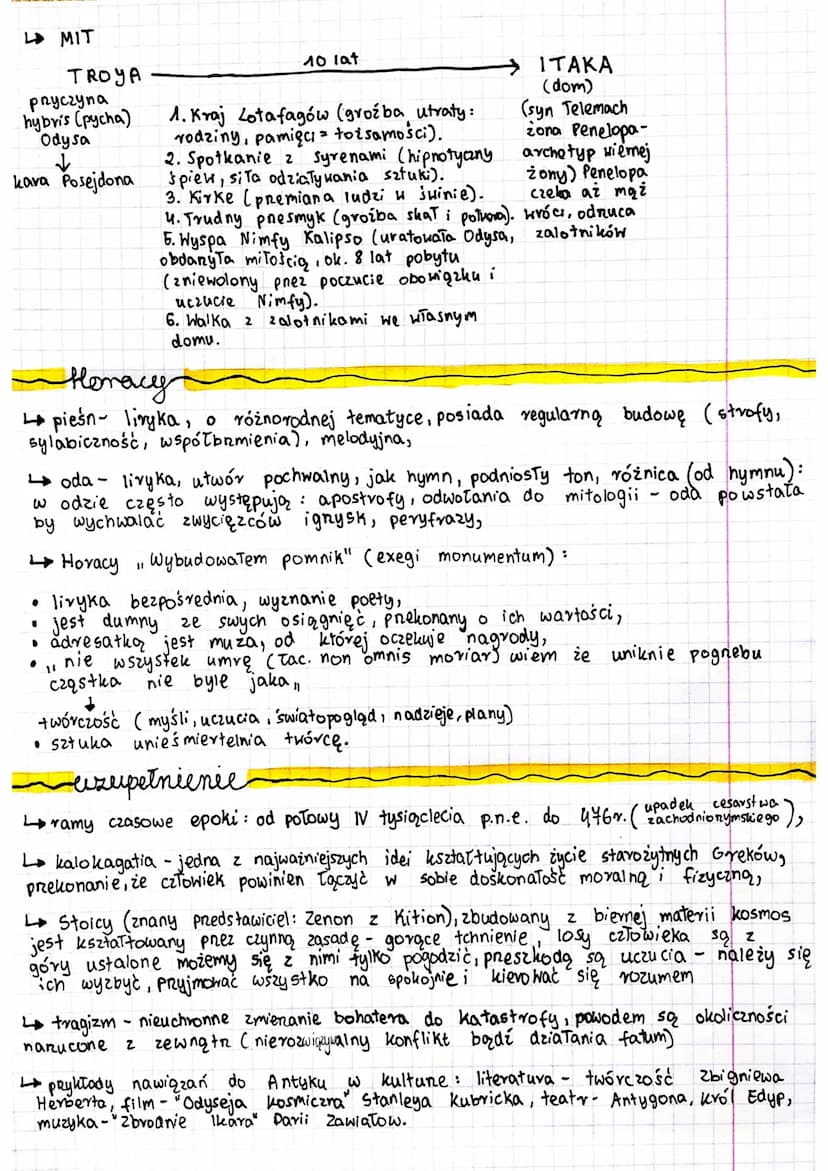 ↳ MIT
10 lat
TROYA → ITAKA
(dom)
przyczyna
hybris (pycha)
Odysa
↓
kara Posejdona
1. Kraj Lotafagów (groźba utraty:
rodziny, pamięci = tożsamości).
2. Spotkanie z Syrenami (hipnotyczny
śpiew, siła odziaływania sztuki).
3. Kirke (przemiana ludzi w świnie).
4. Trudny przesmyk (groźba skał i potwora).
5. Wyspa Nimfy Kalipso (uratowała Odysa,
obdarzyła miłością, ok. 8 lat pobytu
(zniewolony przez poczucie obowiązku i
uczucie Nimfy).
6. Walka z zalotnikami we własnym
domu.
(syn Telemach
żona Penelopa-
archetyp wiernej
żony) Penelopa
czeka aż mąż
wróci, odrzuca
zalotników
Horacy
↳ pieśń- liryka, o różnorodnej tematyce, posiada regularną budowę (strofy,
sylabiczność, współbrzmienia), melodyjna,
↳ oda - liryka, utwór pochwalny, jak hymn, podniosły ton, różnica (od hymnu):
w odzie często występują: apostrofy, odwołania do mitologii - oda powstała
by wychwalać zwycięzców igrzysk, peryfrazy,
↳ Horacy „Wybudowałem pomnik" (exegi monumentum):
• liryka bezpośrednia, wyznanie poety,
• jest dumny ze swych osiągnięć, przekonany o ich wartości,
• adresatką jest muza, od której oczekuje nagrody,
• „nie wszystek umrę (łac. non omnis moriar) wiem że uniknie pogrzebu
cząstka nie byle jaka„
↓
twórczość (myśli, uczucia, światopogląd, nadzieje, plany)
• sztuka unieśmiertelnia twórcę.
uzupełnienie
↳ ramy czasowe epoki: od połowy IV tysiąclecia p.n.e. do 476r. (upadek cesarstwa
zachodniorzymskiego),
↳ kalokagatia - jedna z najważniejszych idei kształtujących życie starożytnych Greków,
przekonanie, że człowiek powinien łączyć w sobie doskonałość moralną i fizyczną,
↳ Stoicy (znany przedstawiciel: Zenon z Kition), zbudowany z biernej materii kosmos
jest kształtowany przez czynną zasadę - gorące tchnienie, losy człowieka są z
góry ustalone możemy się z nimi tylko pogodzić, przeszkodą są uczucia - należy się
ich wyzbyć, przyjmować wszystko na spokojnie i kierować się rozumem
↳ tragizm - nieuchronne zmierzanie bohatera do katastrofy, powodem są okoliczności
narzucone z zewnątrz (nierozwiązywalny konflikt bądź działania fatum)
↳ przykłady nawiązań do Antyku w kulturze: literatura - twórczość Zbigniewa
Herberta, film - "Odyseja kosmiczna" Stanleya Kubricka, teatr- Antygona, Król Edyp,
muzyka- "Zbrodnie Ikara" Darii Zawiałow.